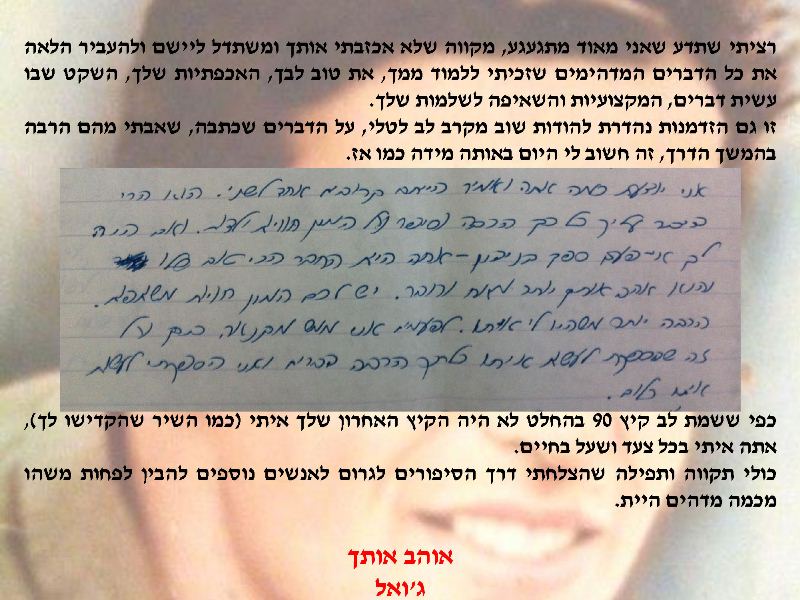 רציתי שתדע שאני מאוד מתגעגע, מקווה שלא אכזבתי אותך ומשתדל ליישם ולהעביר הלאה
את כל הדברים המדהימים שזכיתי ללמוד ממך, את טוב לבך, האכפתיות שלך, השקט שבו
עשית דברים, המקצועיות והשאיפה לשלמות שלך.
זו גם הזדמנות נהדרת להודות שוב מקרב לב לטלי, על הדברים שכתבה, שאבתי מהם הרבה
בהמשך הדרך, זה חשוב לי היום באותה מידה כמו אז.
אני יודעת כמה אתה ואמיר הייתם קרובים אחד לשני. הוא הרי
דיבר עליך כל כך הרבה וסיפר על המון חוויות ילדות. ואם היה
לך אי-פעם ספק בנידון - אתה היית החבר הכי טוב שלו
והוא אהב אותך יותר. יש לכם המון חוויות משותפות.
הרבה יותר משהיו לי איתו. לפעמים אני ממש מקנאה, בך על
זה שהספקת לעשות איתו כל כך הרבה דברים ואני הספקתי לעשות
איתו כלום.
כפי ששמת לב קיץ 90 בהחלט לא היה הקיץ האחרון שלך איתי (כמו השיר שהקדישו לך),
אתה איתי בכל צעד ושעל בחיים.
כולי תקווה ותפילה שהצלחתי דרך הסיפורים לגרום לאנשים נוספים להבין לפחות משהו
מכמה מדהים היית.
אוהב אותך
ג'ואל